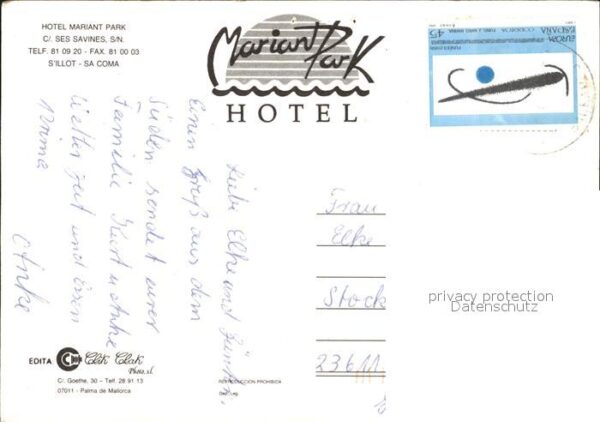 HOTEL MARIANT PARK
C/. SES SAVINES, S/N.
TELF. 81 09 20 - FAX. 81 00 03
S'ILLOT - SA COMA
Mariant Park
HOTEL
EUROPA
ESPAÑA
45
Liebe Elke und Günter,
Einen Gruß aus dem
Süden sendet eurer
Familie Kurt u Anke
Wetter gut und Essen
prima
Anke
Frau
Elke
Stock
23611
privacy protection
Datenschutz
EDITA
Clik Clak
Photo, s.l.
C/. Goethe, 30 - Telf. 28 91 13
07011 - Palma de Mallorca
REPRODUCCION PROHIBIDA